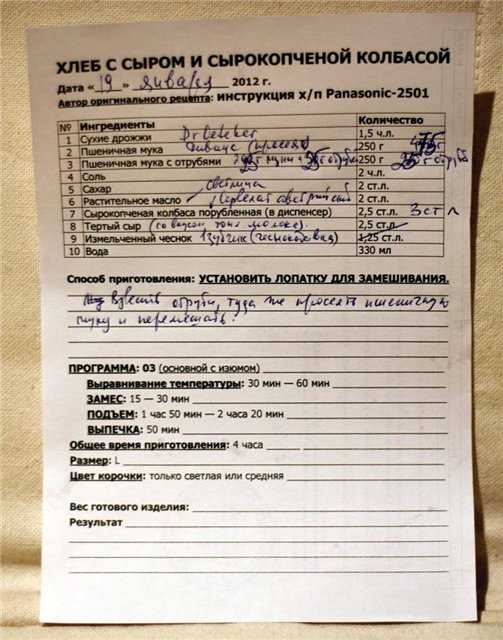 ХЛЕБ С СЫРОМ И СЫРОКОПЧЕНОЙ КОЛБАСОЙ
Дата «19» января 2012 г.
Автор оригинального рецепта: инструкция х/п Panasonic-2501
№ Ингредиенты Количество
1 Сухие дрожжи Dr Oetker 1,5 ч.л.
2 Пшеничная мука (просеять) 250 г
3 Пшеничная мука с отрубями 250 г
4 Соль 2 ч.л.
5 Сахар 2 ст.л.
6 Растительное масло 2 ст.л.
7 Сырокопченая колбаса порубленная (в диспенсер) 2,5 ст.л. 3 ст л
8 Тертый сыр (со вкусом топл. молока). 2,5 ст.л
9 Измельченный чеснок 1 зубчик (чеснокодавка) 1,25 ст.л.
10 Вода 330 мл
Способ приготовления: УСТАНОВИТЬ ЛОПАТКУ ДЛЯ ЗАМЕШИВАНИЯ.
Взвесить отруби, туда же просеять пшеничную
муку и перемешать.
ПРОГРАММА: 03 (основной с изюмом)
Выравнивание температуры: 30 мин — 60 мин
ЗАМЕС: 15 — 30 мин
ПОДЪЕМ: 1 час 50 мин — 2 часа 20 мин
ВЫПЕЧКА: 50 мин
Общее время приготовления: 4 часа
Размер: L
Цвет корочки: только светлая или средняя
Вес готового изделия:
Результат